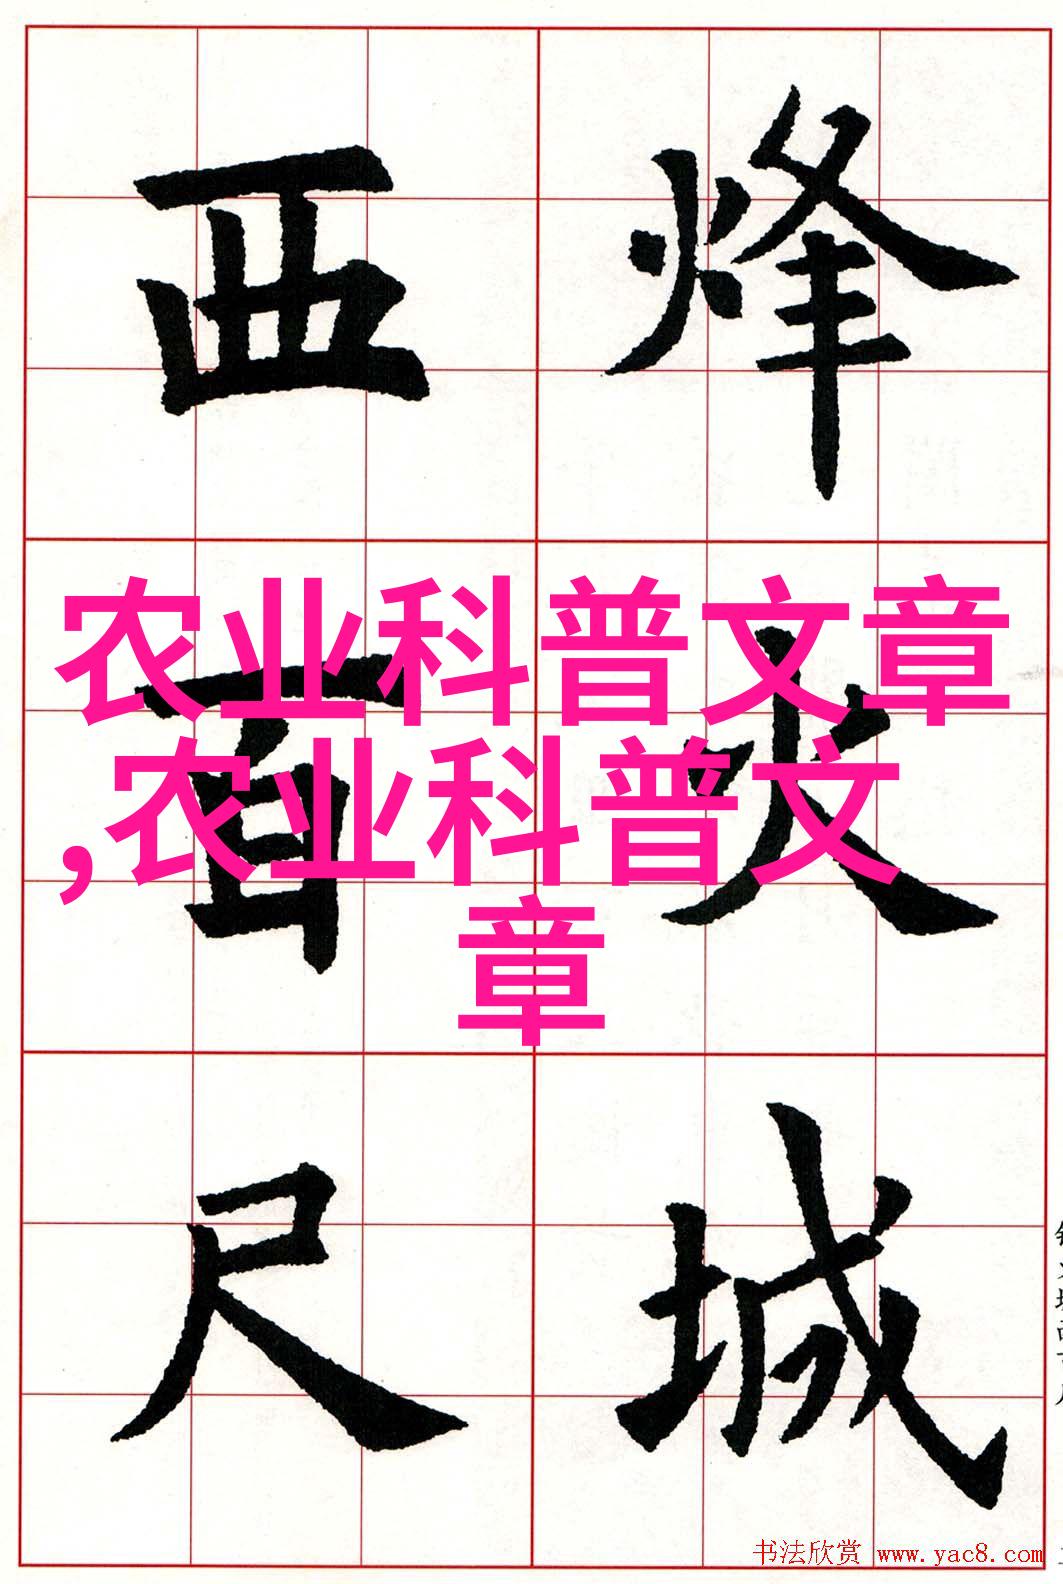 烽火城
西百尺
农业科普文章
,农业科普文
章
书法欣赏 www.yac8.com